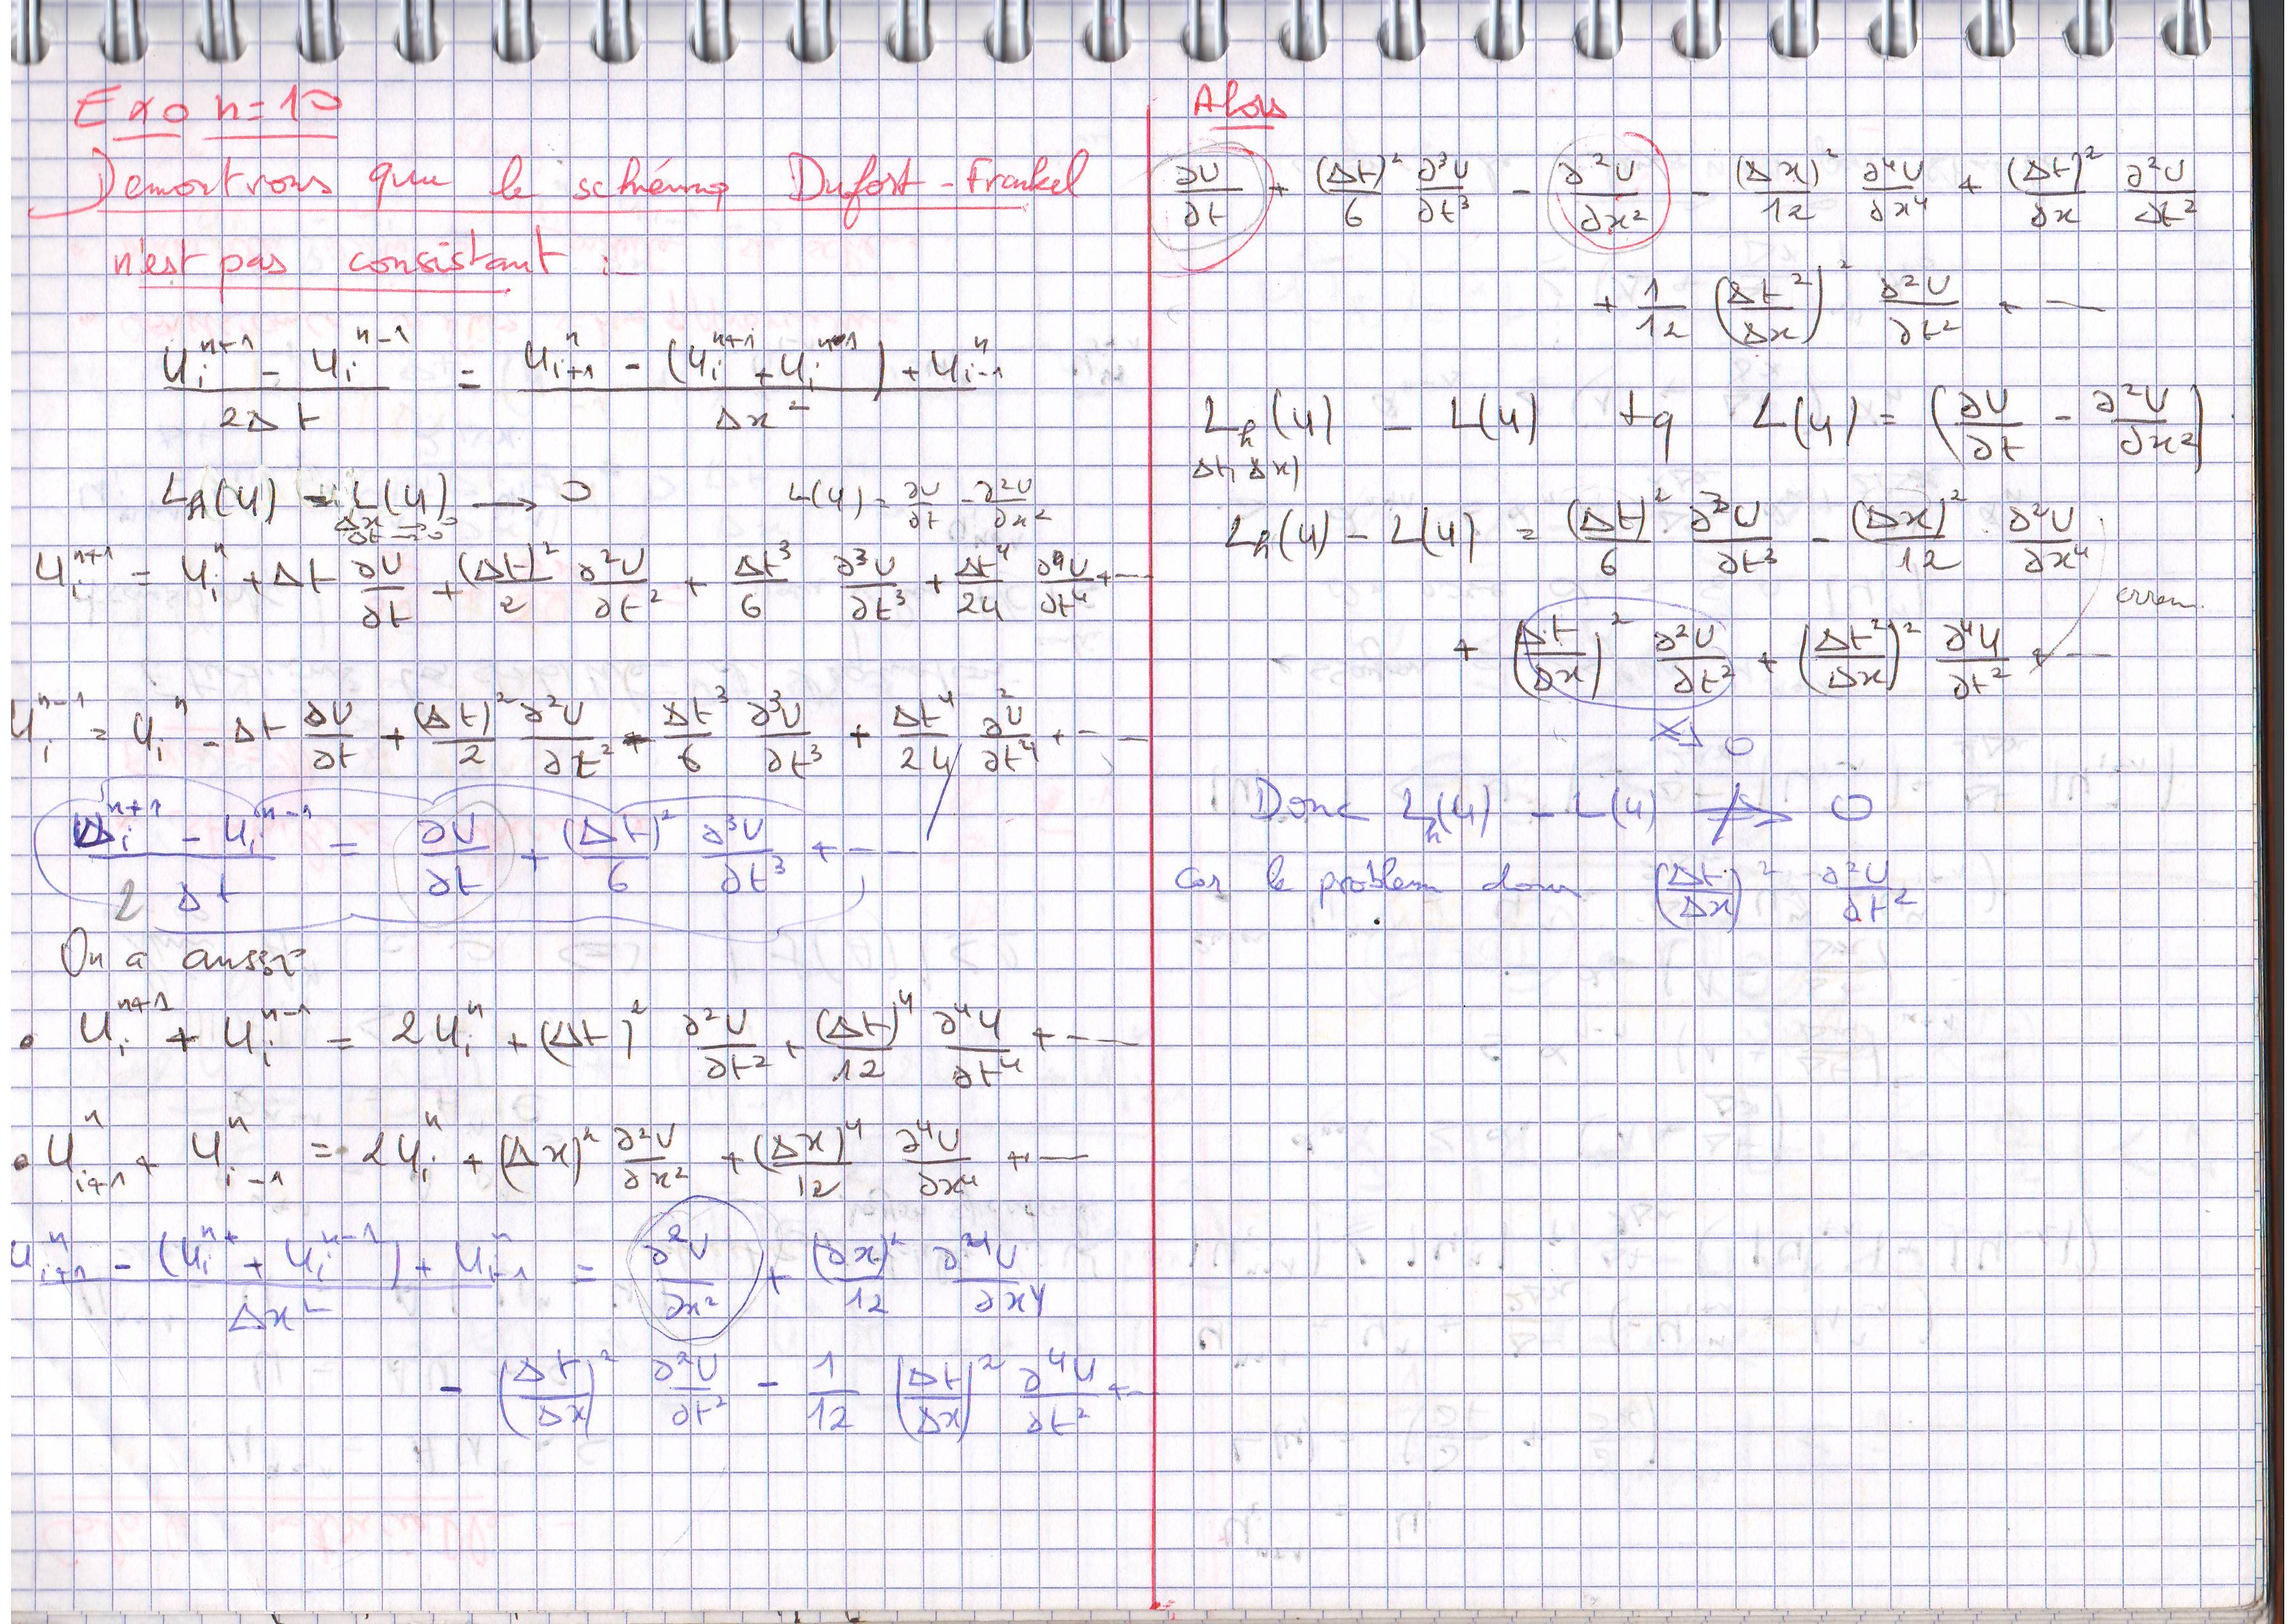 Exo n=10
Demontrons que le schéma Dufort-Frankel
n'est pas consistant :-
(u_i^{n+1} - u_i^{n-1}) / 2Δt = (u_{i+1}^n - (u_i^{n+1} + u_i^{n-1}) + u_{i-1}^n) / Δx²
L_h(u) - L(u) → 0   L(u) = ∂U/∂t - ∂²U/∂x²
Δx → 0
Δt → 0
u_i^{n+1} = u_i^n + Δt ∂U/∂t + (Δt)²/2 ∂²U/∂t² + Δt³/6 ∂³U/∂t³ + Δt⁴/24 ∂⁴U/∂t⁴ + ---
u_i^{n-1} = u_i^n - Δt ∂U/∂t + (Δt)²/2 ∂²U/∂t² - Δt³/6 ∂³U/∂t³ + Δt⁴/24 ∂²U/∂t⁴ + ---
(u_i^{n+1} - u_i^{n-1}) / 2Δt = ∂U/∂t + (Δt)²/6 ∂³U/∂t³ + ---
On a aussi
• u_i^{n+1} + u_i^{n-1} = 2u_i^n + (Δt)² ∂²U/∂t² + (Δt)⁴/12 ∂⁴u/∂t⁴ + ---
• u_{i+1}^n + u_{i-1}^n = 2u_i^n + (Δx)² ∂²U/∂x² + (Δx)⁴/12 ∂⁴U/∂x⁴ + ---
(u_{i+1}^n - (u_i^{n+} + u_i^{n-1}) + u_{i-1}^n) / Δx² = ∂²U/∂x² + (∂x)²/12 ∂⁴U/∂x⁴
- (Δt/Δx)² ∂²U/∂t² - 1/12 (Δt/Δx)² ∂⁴U/∂t² + --
Alors
∂U/∂t + (Δt)²/6 ∂³U/∂t³ - ∂²U/∂x² - (Δx)²/12 ∂⁴U/∂x⁴ + (Δt/Δx)² ∂²U/∂t²
+ 1/12 (Δt²/Δx)² ∂²U/∂t² + ---
L_h(u) - L(u)   tq   L(u) = (∂U/∂t - ∂²U/∂x²)
Δt, Δx)
L_h(u) - L(u) = (Δt)²/6 ∂³U/∂t³ - (Δx)²/12 ∂²U/∂x⁴
+ (Δt/Δx)² ∂²U/∂t² + (Δt²/Δx)² ∂⁴u/∂t² + ---
↛ 0
Donc L_h(u) - L(u) ↛ 0
car le problem dans (Δt/Δx)² ∂²U/∂t²